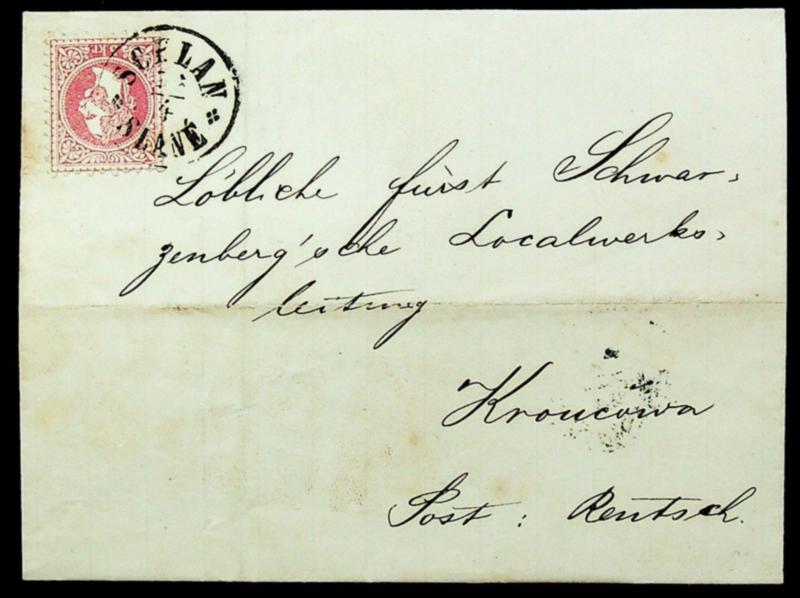 5 kr.
SCHLAN
SLANÉ
Löbliche fürst Schwar-
zenberg'sche Localwerks-
leitung
Kroucowa
Post: Rentsch.